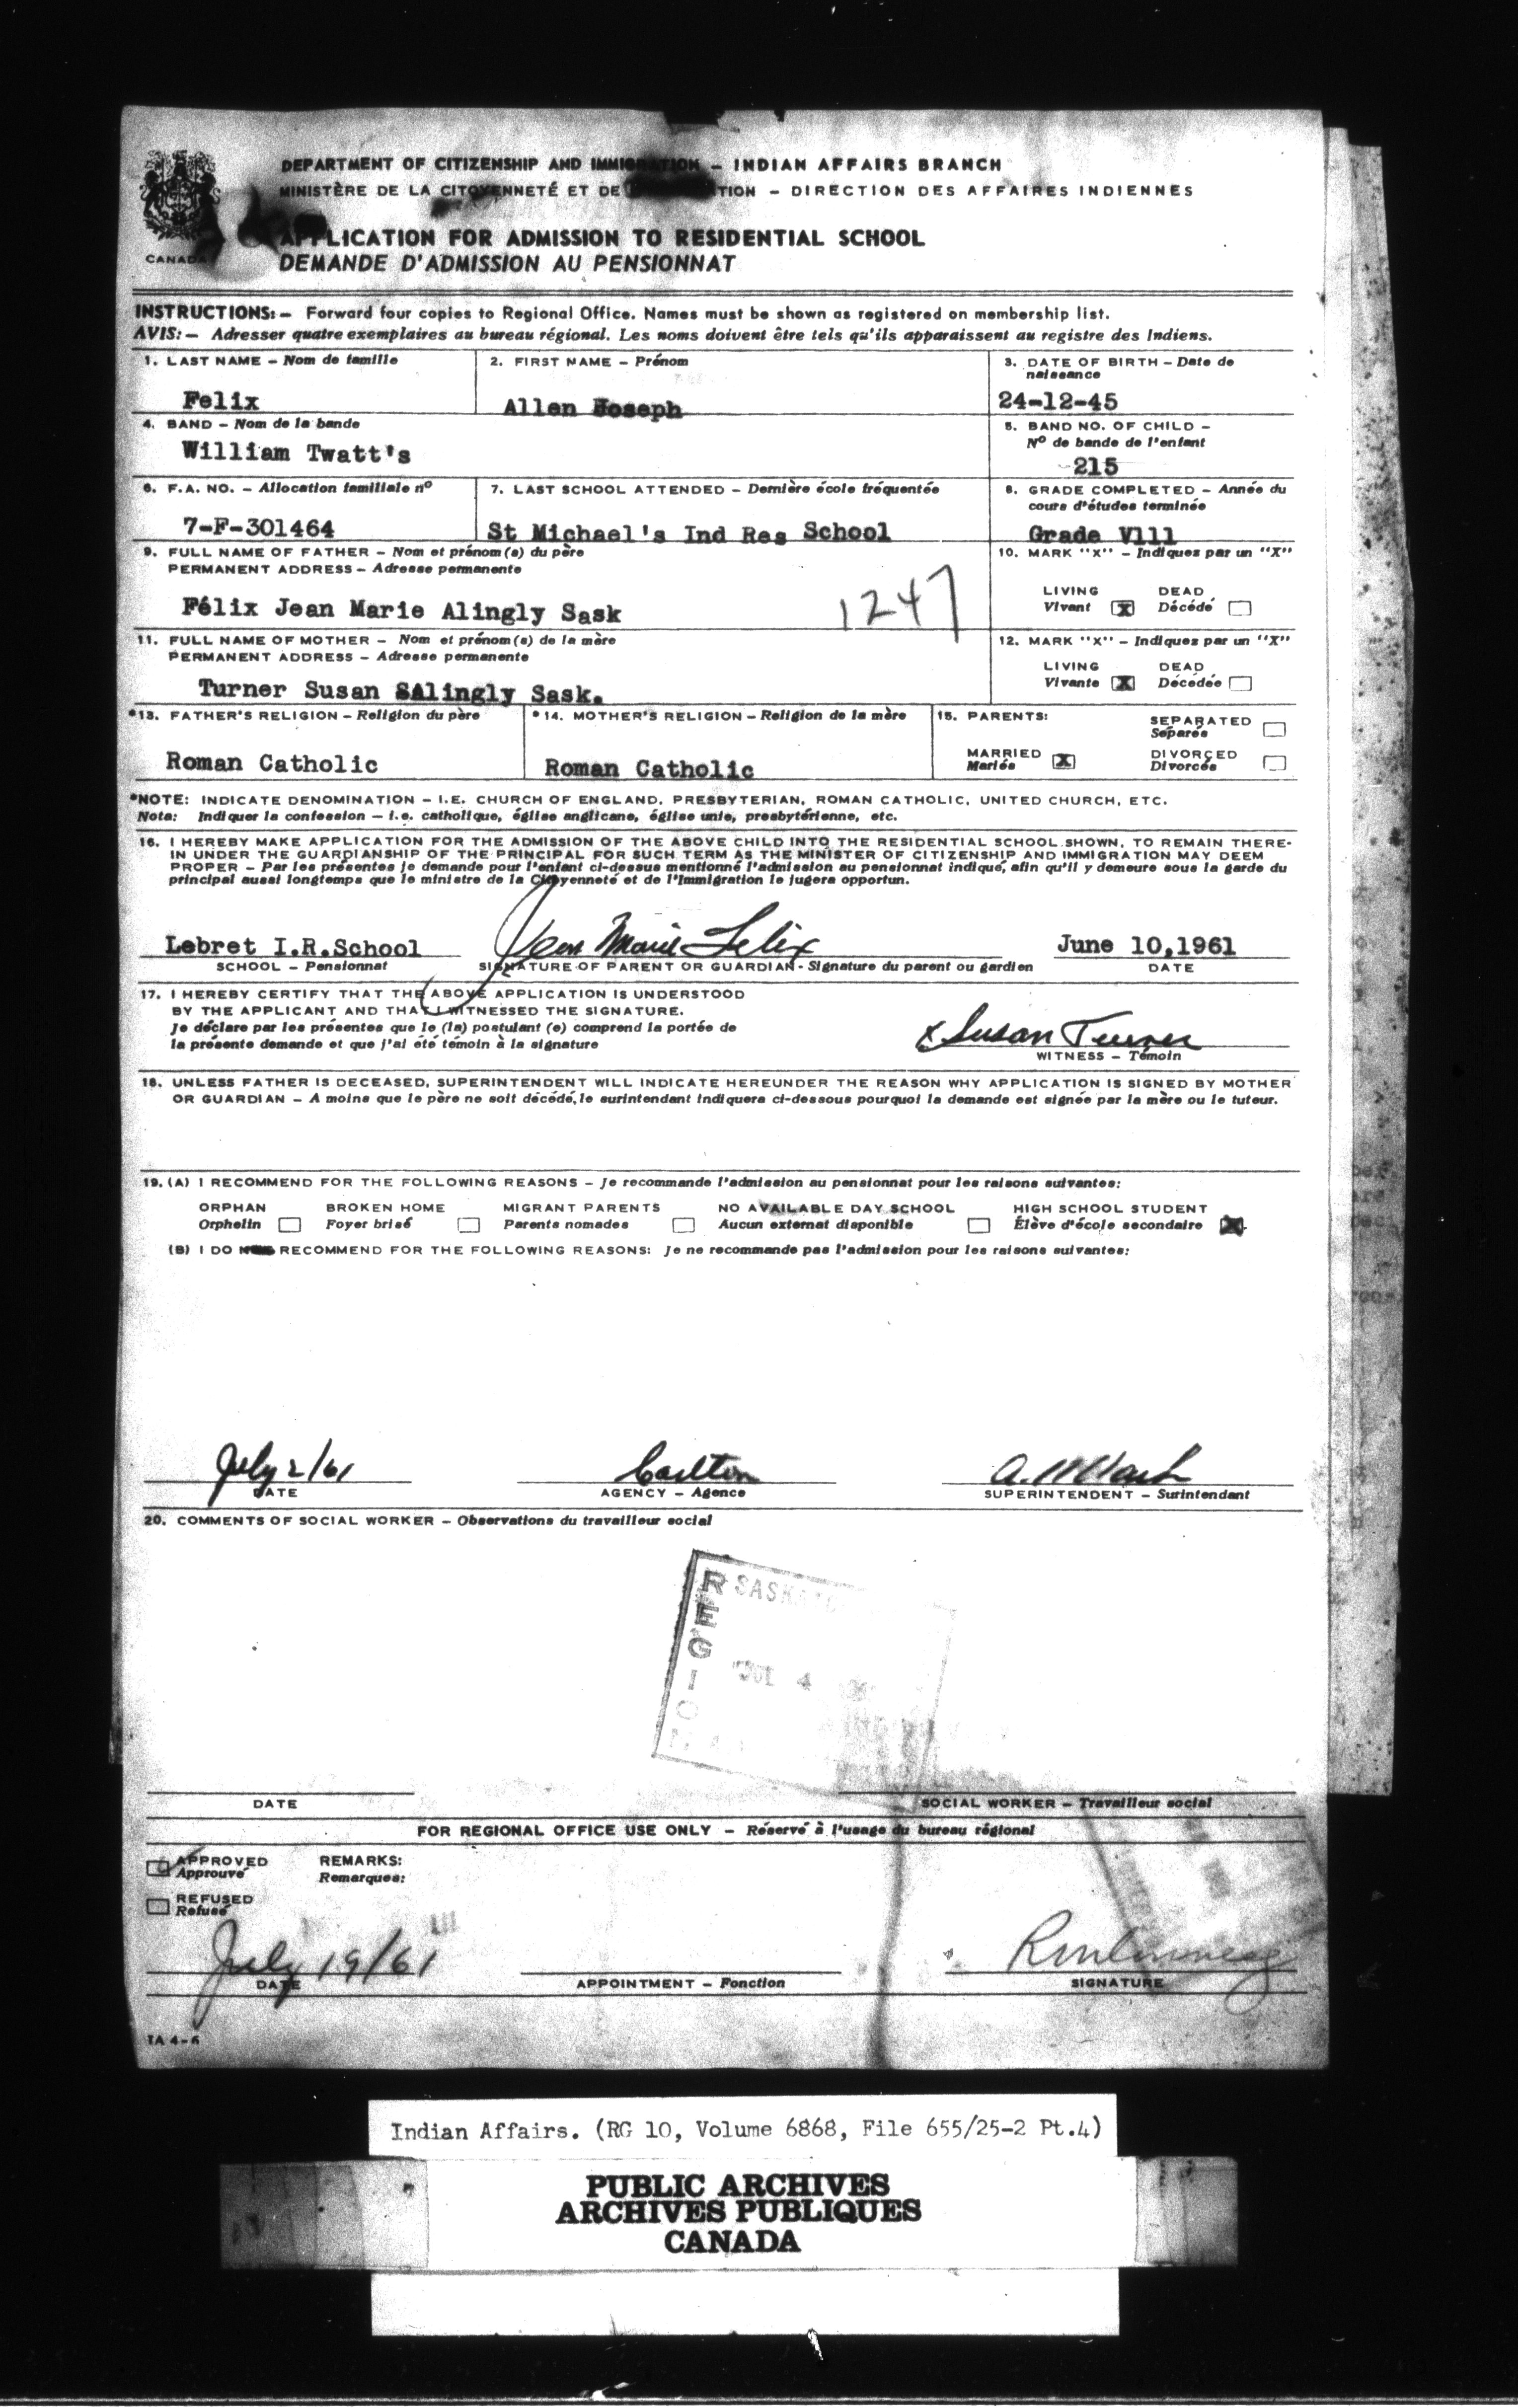 DEPARTMENT OF CITIZENSHIP AND IMMIGRATION – INDIAN AFFAIRS BRANCH
MINISTÈRE DE LA CITOYENNETÉ ET DE TION – DIRECTION DES AFFAIRES INDIENNES
APPLICATION FOR ADMISSION TO RESIDENTIAL SCHOOL
CANADA
DEMANDE D'ADMISSION AU PENSIONNAT
INSTRUCTIONS:– Forward four copies to Regional Office. Names must be shown as registered on membership list.
AVIS:– Adresser quatre exemplaires au bureau régional. Les noms doivent être tels qu'ils apparaissent au registre des Indiens.
1. LAST NAME – Nom de famille
Felix
2. FIRST NAME – Prénom
Allen Joseph
3. DATE OF BIRTH – Date de naissance
24-12-45
4. BAND – Nom de la bande
William Twatt's
5. BAND NO. OF CHILD –
Nº de bande de l'enfant
215
6. F.A. NO. – Allocation familiale nº
7-F-301464
7. LAST SCHOOL ATTENDED – Dernière école fréquentée
St Michael's Ind Res School
8. GRADE COMPLETED – Année du
cours d'études terminée
Grade V111
9. FULL NAME OF FATHER – Nom et prénom(s) du père
PERMANENT ADDRESS – Adresse permanente
Félix Jean Marie Alingly Sask
1247
10. MARK "X" – Indiquez par un "X"
LIVING DEAD
Vivant X Décédé
11. FULL NAME OF MOTHER – Nom et prénom(s) de la mère
PERMANENT ADDRESS – Adresse permanente
Turner Susan SAlingly Sask.
12. MARK "X" – Indiquez par un "X"
LIVING DEAD
Vivante X Décédée
*13. FATHER'S RELIGION – Religion du père
Roman Catholic
*14. MOTHER'S RELIGION – Religion de la mère
Roman Catholic
15. PARENTS:
SEPARATED
Séparés
MARRIED DIVORCED
Mariés X Divorcés
*NOTE: INDICATE DENOMINATION – I.E. CHURCH OF ENGLAND, PRESBYTERIAN, ROMAN CATHOLIC, UNITED CHURCH, ETC.
Nota: Indiquer la confession – i.e. catholique, église anglicane, église unie, presbytérienne, etc.
16. I HEREBY MAKE APPLICATION FOR THE ADMISSION OF THE ABOVE CHILD INTO THE RESIDENTIAL SCHOOL SHOWN, TO REMAIN THERE-
IN UNDER THE GUARDIANSHIP OF THE PRINCIPAL FOR SUCH TERM AS THE MINISTER OF CITIZENSHIP AND IMMIGRATION MAY DEEM
PROPER – Par les présentes je demande pour l'enfant ci-dessus mentionné l'admission au pensionnat indiqué, afin qu'il y demeure sous la garde du
principal aussi longtemps que le ministre de la Citoyenneté et de l'Immigration le jugera opportun.
Lebret I.R.School Jean Marie Felix June 10,1961
SCHOOL – Pensionnat SIGNATURE OF PARENT OR GUARDIAN - Signature du parent ou gardien DATE
17. I HEREBY CERTIFY THAT THE ABOVE APPLICATION IS UNDERSTOOD
BY THE APPLICANT AND THAT I WITNESSED THE SIGNATURE.
Je déclare par les présentes que le (la) postulant (e) comprend la portée de
la présente demande et que j'ai été témoin à la signature
x Susan Turner
WITNESS – Témoin
18. UNLESS FATHER IS DECEASED, SUPERINTENDENT WILL INDICATE HEREUNDER THE REASON WHY APPLICATION IS SIGNED BY MOTHER
OR GUARDIAN – A moins que le père ne soit décédé, le surintendant indiquera ci-dessous pourquoi la demande est signée par la mère ou le tuteur.
19. (A) I RECOMMEND FOR THE FOLLOWING REASONS – Je recommande l'admission au pensionnat pour les raisons suivantes:
ORPHAN BROKEN HOME MIGRANT PARENTS NO AVAILABLE DAY SCHOOL HIGH SCHOOL STUDENT
Orphelin Foyer brisé Parents nomades Aucun externat disponible Élève d'école secondaire X
(B) I DO RECOMMEND FOR THE FOLLOWING REASONS: Je ne recommande pas l'admission pour les raisons suivantes:
July 2/61 Carlton
DATE AGENCY – Agence SUPERINTENDENT – Surintendant
20. COMMENTS OF SOCIAL WORKER – Observations du travailleur social
REGION
JUL 4
DATE SOCIAL WORKER – Travailleur social
FOR REGIONAL OFFICE USE ONLY – Réservé à l'usage du bureau régional
APPROVED REMARKS:
Approuvé Remarques:
REFUSED
Refusé
July 19/61
DATE APPOINTMENT – Fonction SIGNATURE
IA 4-6
Indian Affairs. (RG 10, Volume 6868, File 655/25-2 Pt.4)
PUBLIC ARCHIVES
ARCHIVES PUBLIQUES
CANADA